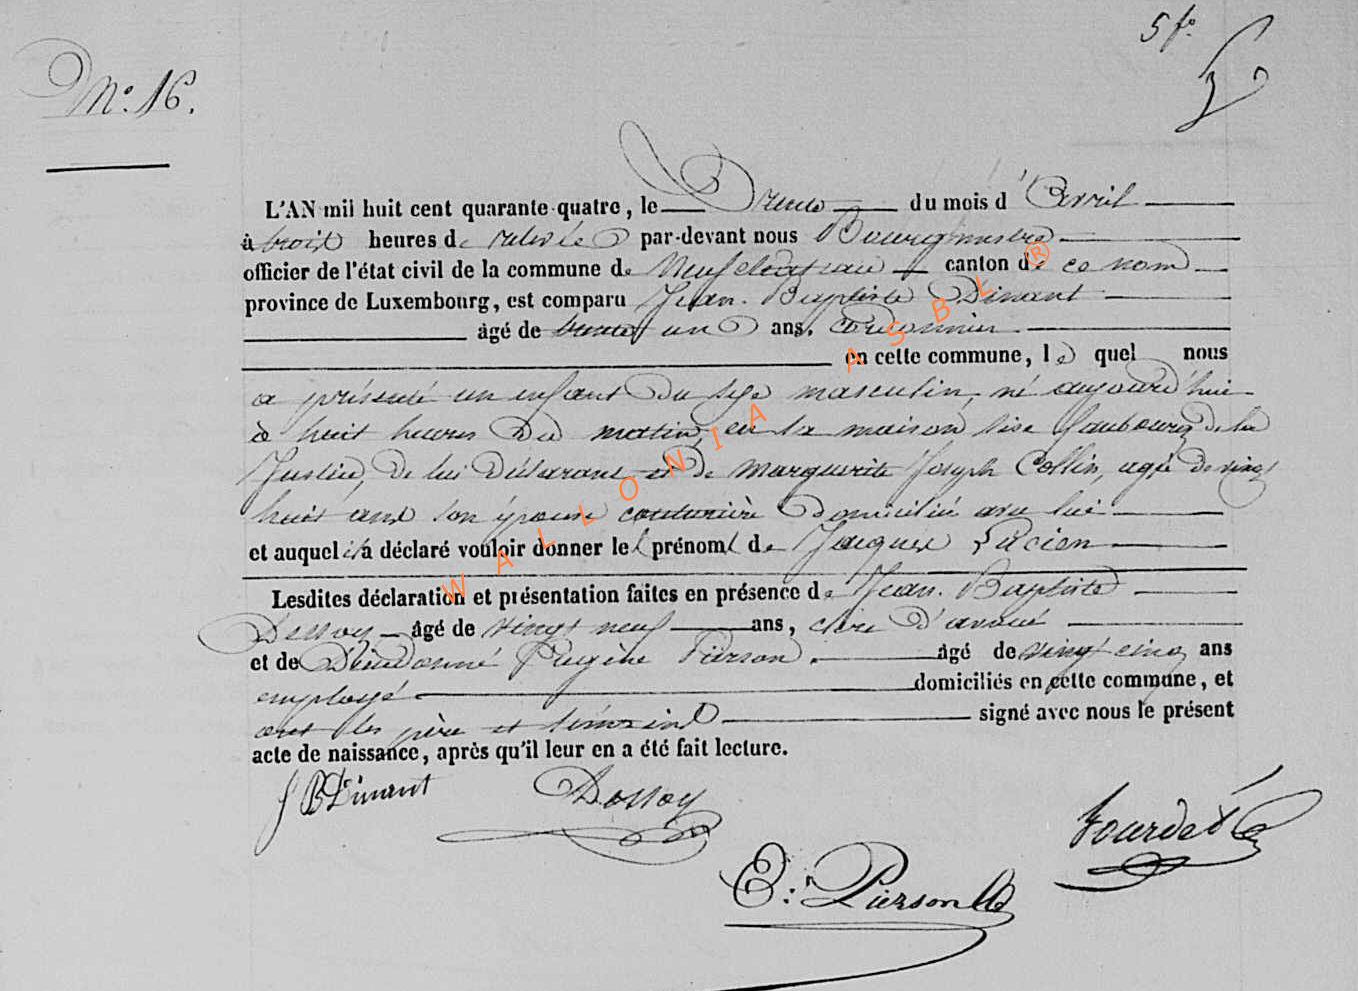 5 f°
N° 16.
L'AN mil huit cent quarante-quatre, le Trente du mois d'Avril
à trois heures de relevée par-devant nous Bourgmestre
officier de l'état civil de la commune de Neufchâteau canton de ce nom
province de Luxembourg, est comparu Jean-Baptiste Dinant
âgé de trente un ans, cordonnier
en cette commune, le quel nous
a présenté un enfant du sexe masculin, né aujourd'hui
à huit heures du matin, en la maison sise faubourg de la
Justice, de lui déclarant et de Marguerite Joseph Collin, agée de vingt
huit ans son épouse couturière domiciliée avec lui
et auquel il a déclaré vouloir donner les prénoms de Jacques Lucien
Lesdites déclaration et présentation faites en présence de Jean-Baptiste
Dessoy âgé de vingt neuf ans, clerc d'avoué
et de Dieudonné Eugène Pierson. âgé de vingt cinq ans
employé domiciliés en cette commune, et
ont les père et témoins signé avec nous le présent
acte de naissance, après qu'il leur en a été fait lecture.
J B Dinant Dessoy
Fourdet
E: Pierson
WALLONIA ASBL ®